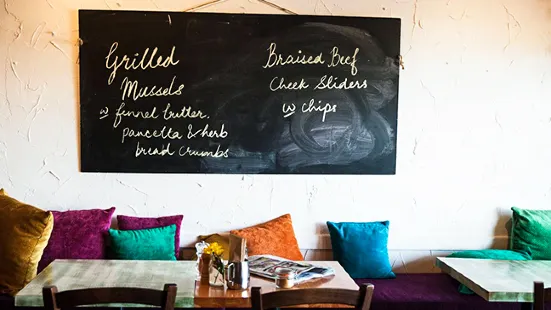 Grilled
Mussels
w fennel butter,
pancetta & herb
bread crumbs
Braised Beef
Cheek Sliders
w chips